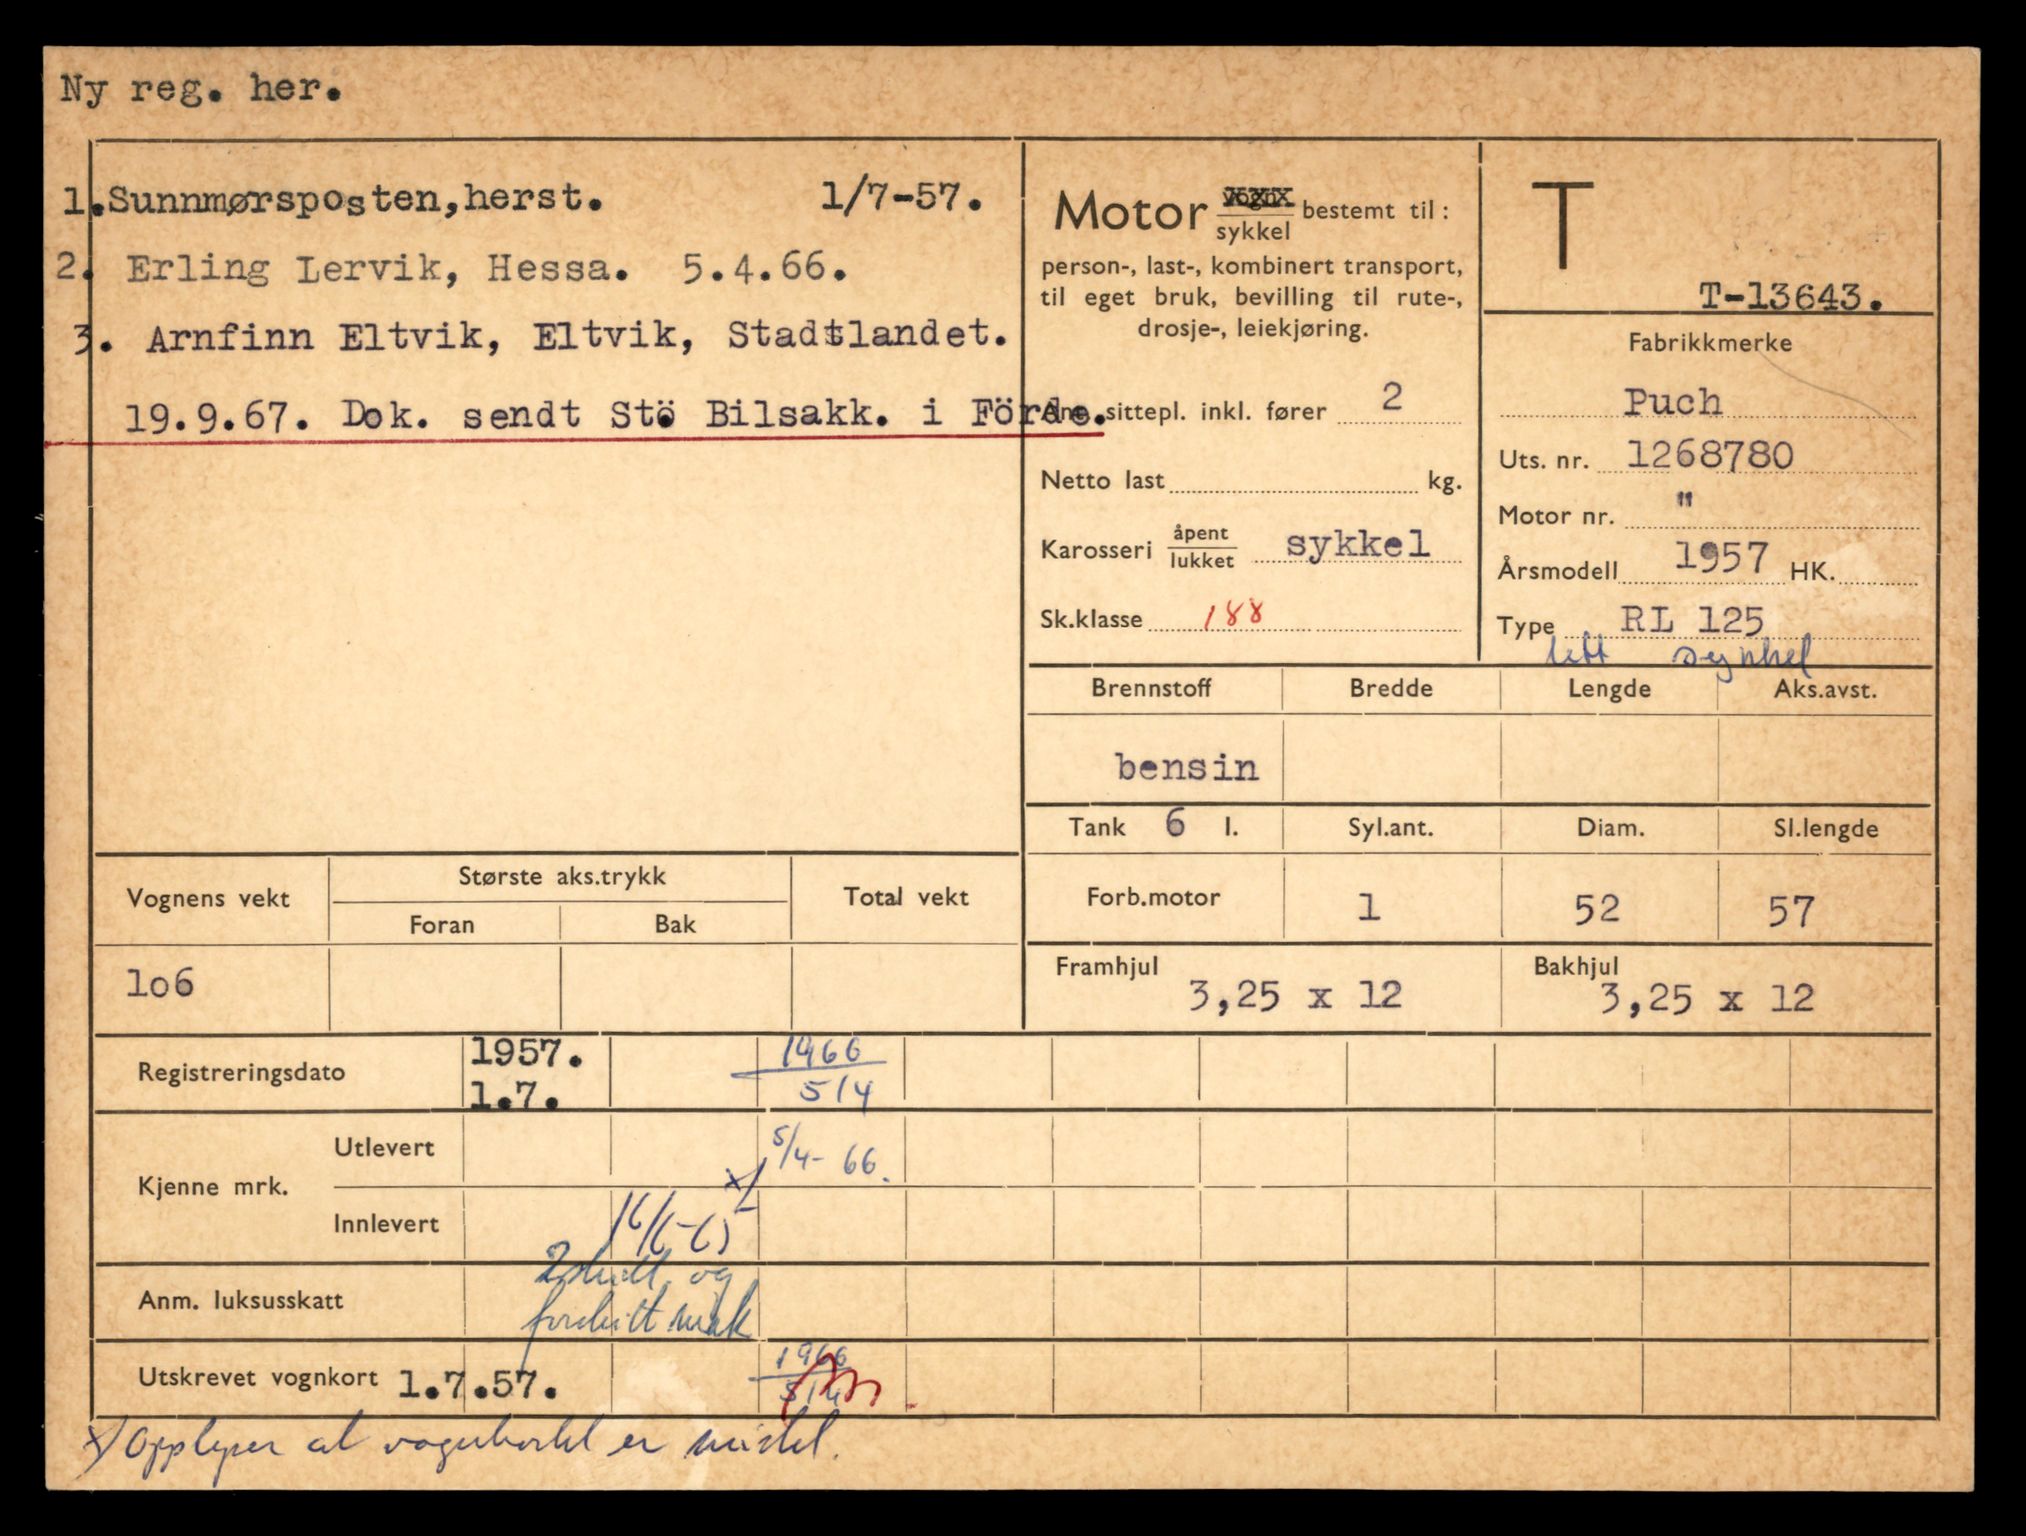 Ny reg. her.
1. Sunnmørsposten, herst. 1/7-57.
2. Erling Lervik, Hessa. 5.4.66.
3. Arnfinn Eltvik, Eltvik, Stadtlandet.
19.9.67. Dok. sendt Stö Bilsakk. i Förde.
Motor vogn/sykkel bestemt til:
person-, last-, kombinert transport,
til eget bruk, bevilling til rute-,
drosje-, leiekjøring.
Ant. sittepl. inkl. fører 2
Netto last kg.
Karosseri åpent/lukket sykkel
Sk.klasse 188
T
T-13643.
Fabrikkmerke
Puch
Uts. nr. 1268780
Motor nr. "
Årsmodell 1957 HK.
Type RL 125
lett sykkel
Brennstoff Bredde Lengde Aks.avst.
bensin
Tank 6 l. Syl.ant. Diam. Sl.lengde
Forb.motor 1 52 57
Framhjul 3,25 x 12 Bakhjul 3,25 x 12
Vognens vekt Største aks.trykk Total vekt
Foran Bak
1o6
Registreringsdato 1957. 1966
1.7. 5/4
Kjenne mrk. Utlevert 5/4-66.
x/
Innlevert 16/6-65
2 skilt og
Anm. luksusskatt
foreskitt
Utskrevet vognkort 1.7.57. 1966
5/4
x) Opplyser at vognkortet er mistet.